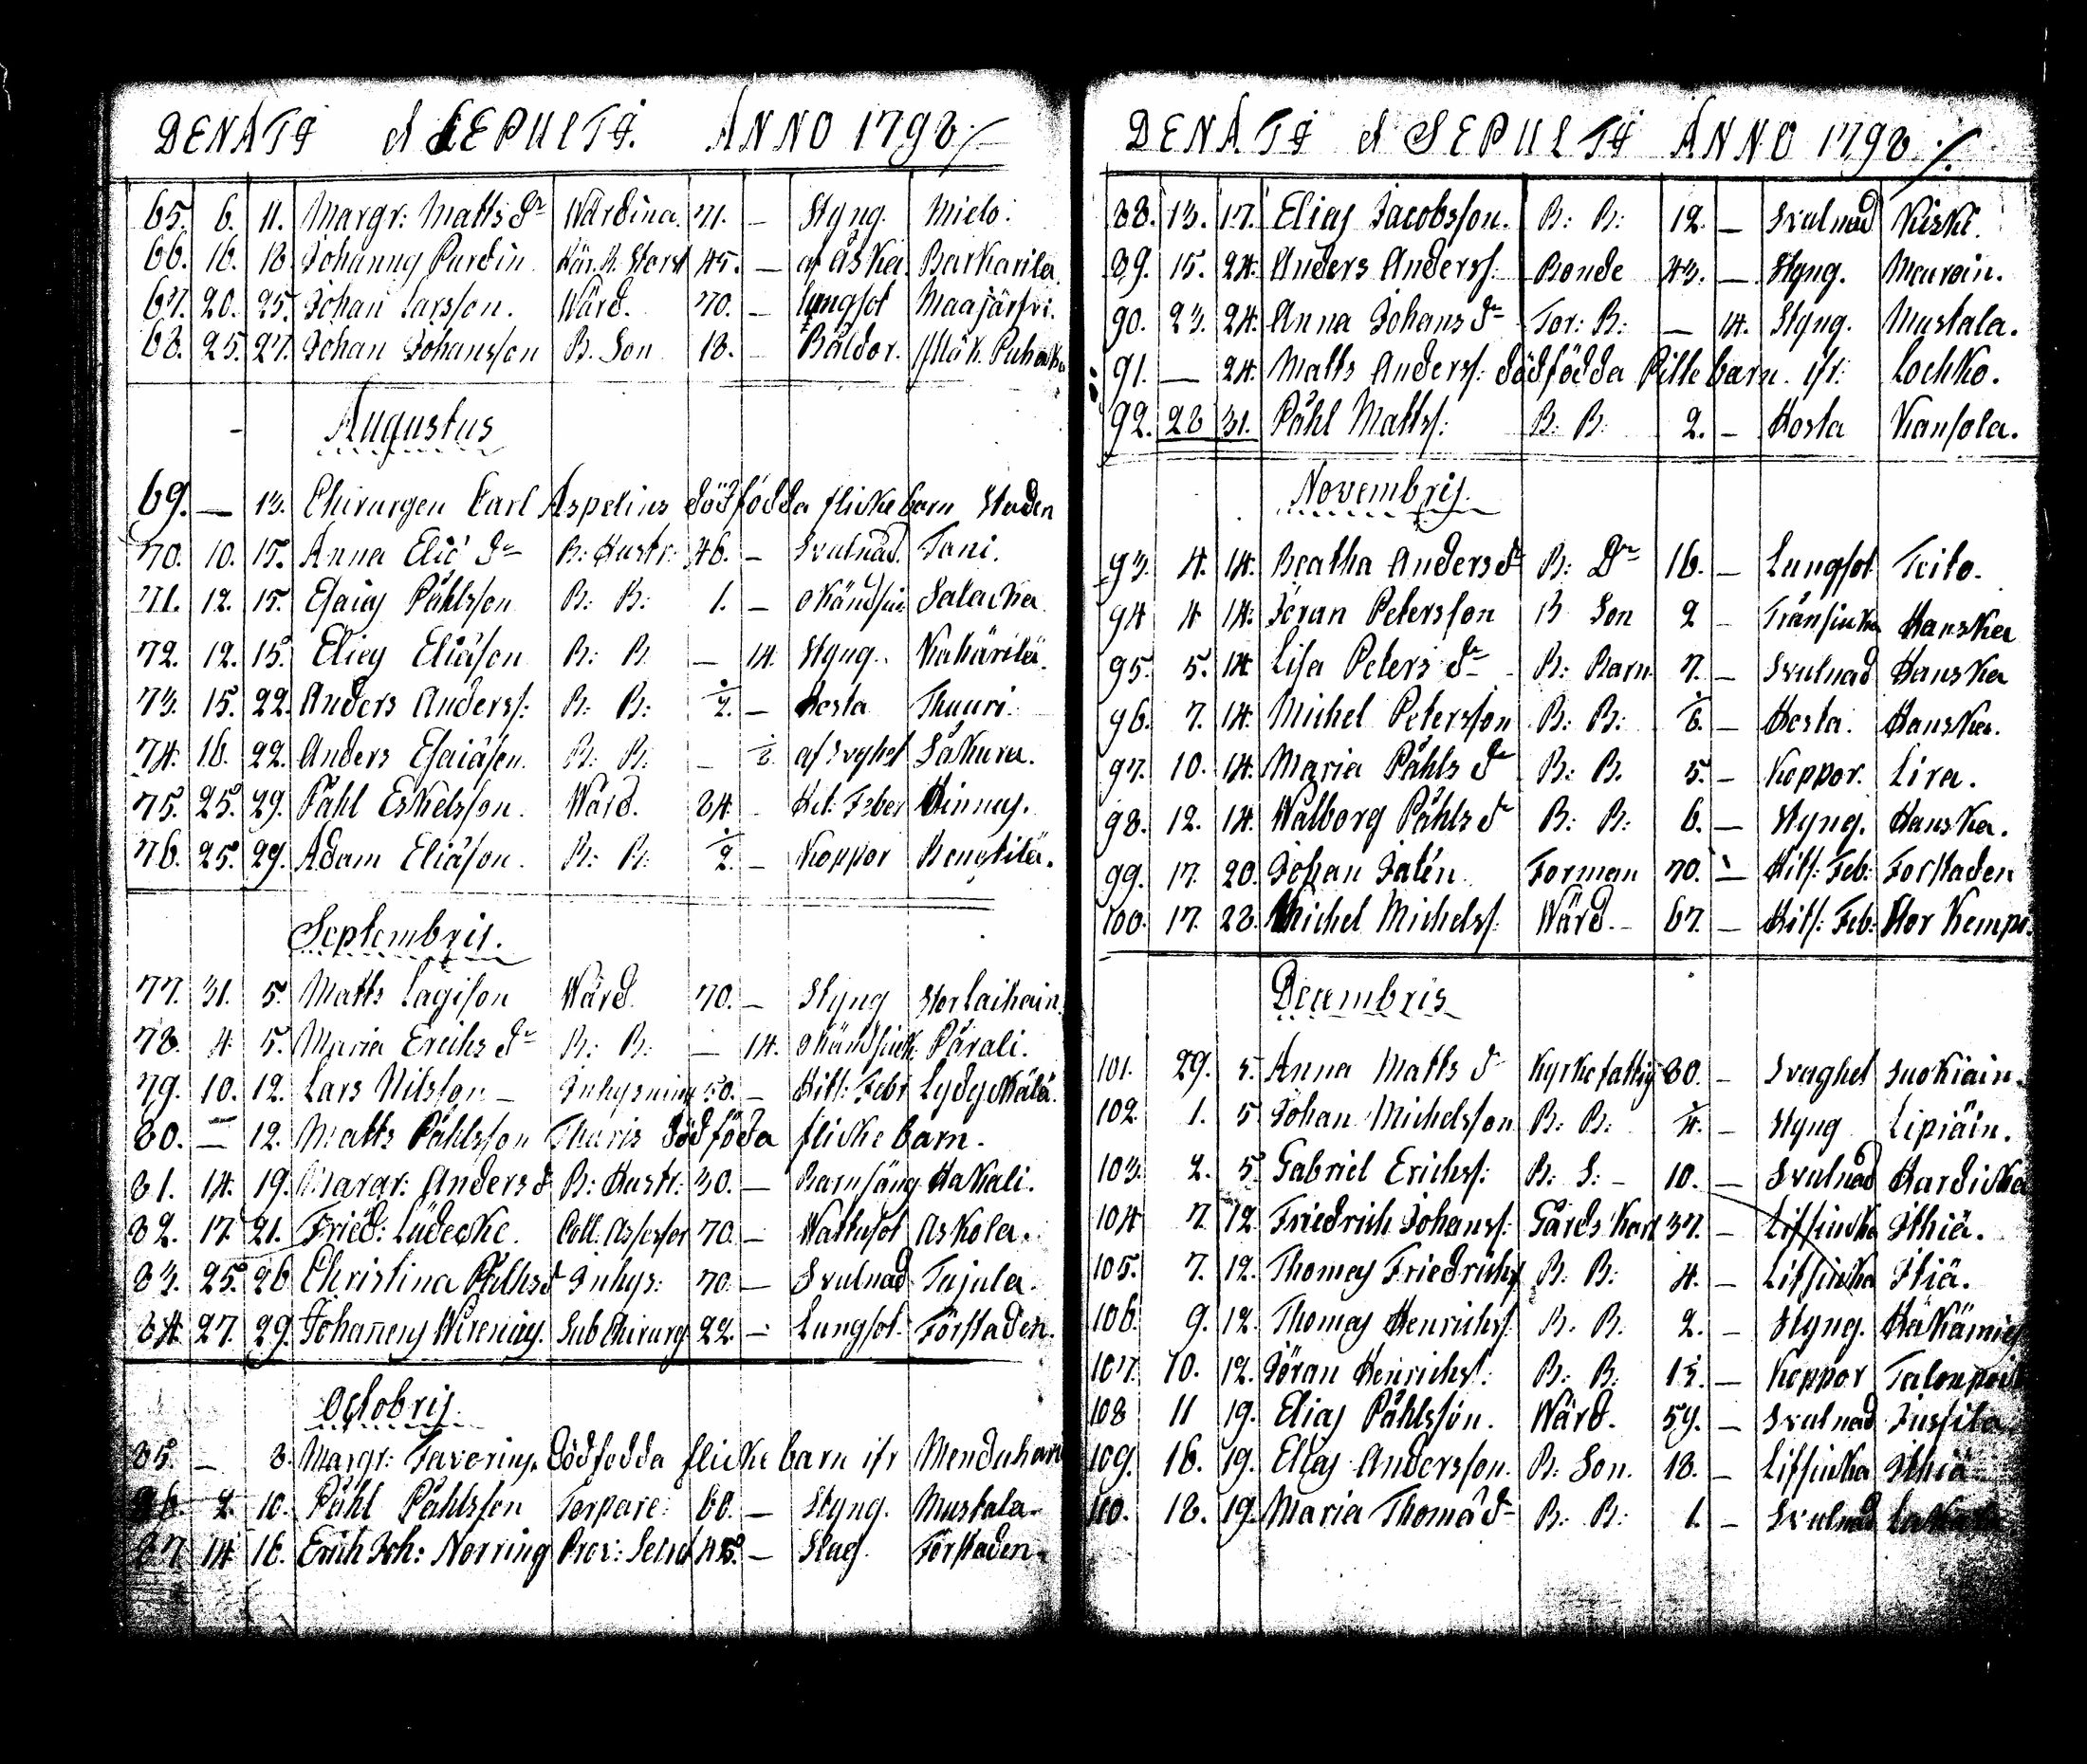 DENATI & SEPULTI. ANNO 1798./
65. 6. 11. Margr: Matts dr Wärdina. 71. — Styng. Mielo.
66. 16. 18 Johannes Purdin 45. — af åska Barkarila
67. 20. 25. Johan Larsson. Wärd. 70. — Lungsot Maajärfvi.
68. 25. 27. Johan Johansson B. Son 18. — Båldor.
Augustus
69. — 13. Chirurgen Carl Aspelins dödfödda flicke barn Staden
70. 10. 15. Anna Elië dr B: Hustr: 46. — Svulnad. Tani.
71. 12. 15. Esaias Påhlsson B: B: 1. — okänd siu: Salacka
72. 12. 15. Elias Eliäson B: B. — 14. Styng. Kakärilä.
73. 15. 22. Anders Anderss: B: B: ½. — Hosta Thuuri.
74. 16. 22. Anders Esaiäson. B: B: — af svaghet Säkura.
75. 25. 29. Påhl Eskelsson. Wärd. 84. Het. Feber Hinnas.
76. 25. 29. Adam Eliäson. B: B: ½. — Koppor Bengtilä.
Septembris.
77. 31. 5. Matts Lagison Wärd. 70. — Styng Storlaihain
78. 4. 5. Maria Erichs dr B: B: — 14. okänd siuk Pärali.
79. 10. 12. Lars Nilsson — Inhysning 50. — Hitt: Febr
80. — 12. Matts Påhlsson Thuris dödföda flicke barn.
81. 14. 19. Margr: Anders d B: Hustr: 30. — Barnsäng Hakali.
82. 17. 21. Fried: Lüdecke. Coll. Assessor 70. — Wattusot Askola.
83. 25. 26 Christina Påhls d Inhys: 70. — Svulnad Tajula.
84. 27. 29. Johannes Wirenius. Sub Chirurg 22. — Lungsot. Förstaden.
Octobris.
85. — 3. Margr: Faverins. dödfödda flicke barn ifr
86. 2. 10. Påhl Påhlsson Torpare: 60. — Styng. Mustala
87. 14 16. Erich Joh: Norring Prov: Secret 45. — Slag. Förstaden.
DENATI & SEPULTI ANNO 1798./.
88. 13. 17. Elias Jacobsson. B: B: 12. — Svulnad Kiski.
89. 15. 24. Anders Anderss: Bonde 43. — Styng. Mauroin.
90. 23. 24. Anna Johans dr Tor: B: — 14. Styng. Mustala.
91. — 24. Matts Anderss: dödfödda Pilte barn. ifr: Lochko.
92. 28 31. Påhl Mattss: B: B: 2. — Hosta Kansola.
Novembris.
93. 4. 14. Beatha Anders dr B: Dr 16. — Lungsot Teito.
94 4 14. Jöran Petersson B Son 2 — Trånsiuka Hanska
95. 5. 14 Lisa Peters dr B: Barn 7. — Svulnad Hanska
96. 7. 14. Michel Petersson B: B: — Hosta. Hanska.
97. 10. 14. Maria Påhls dr B: B. 5. — Koppor. Lira.
98. 12. 14. Walborg Påhls d B: B: 6. — Styng. Hanska.
99. 17. 20. Johan Falén. Forman 70. — Hits: Feb: Forstaden
100. 17. 28. Michel Michelss: Wärd. — 67. — Hits: Feb: Stor Kempi.
Decembris
101. 29. 5. Anna Matts d Kyrkofattig 80. — Svaghet Suokiain.
102. 1. 5 Johan Michelsson B: B: ¼. — Styng Lipiäin.
103. 2. 5. Gabriel Erichss: B: S: — 10. — Svulnad Hardicka
104 7. 12 Friedrich Johanss: Gårds Karl 37. — Lifsiucka Ithiä.
105. 7. 12. Thomas Friedrichs B: B: 4. — Lifsiucka Itiä.
106. 9. 12. Thomas Henrichs: B: B. 2. — Styng. Häkämies
107. 10. 12. Jöran Henrichs: B: B: — Koppor
108 11 19. Elias Påhlsson. Wärd. 59. — Svulnad Jussila
109. 16. 19. Elias Andersson. B: Son. 18. — Lifsiucka Ithiä
110. 18. 19. Maria Thomä dr B: B: 1. — Svulnad